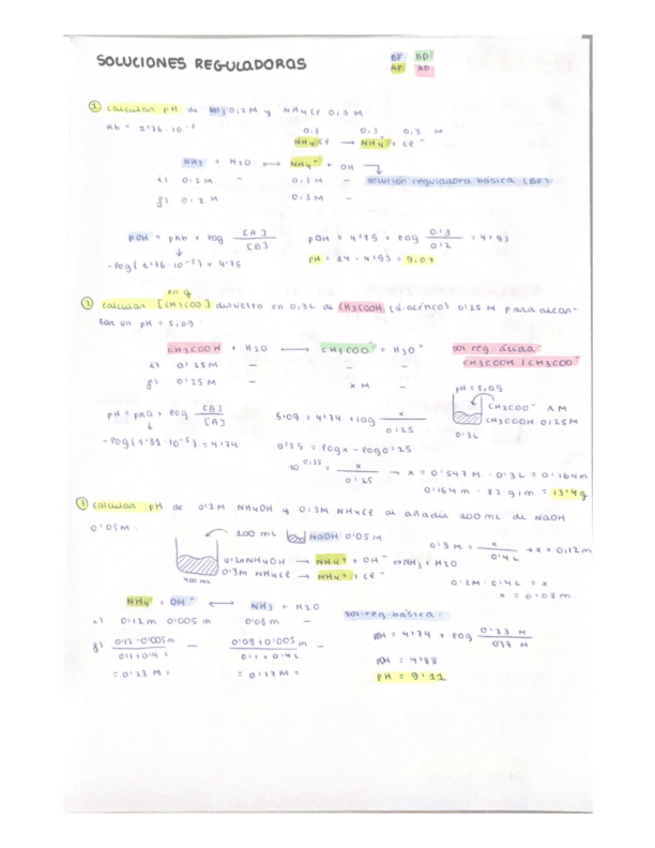 SOLUCIONES REGULADORAS
BF BD
AF AD
1 calcular pH de NH3 0,2M y NH4Cl 0,3 M
Kb = 1'76·10⁻⁵
0,3 0,3 0,3 M
NH4Cl → NH4⁺ + Cl⁻
NH3 + H2O ↔ NH4⁺ + OH
i) 0,2M - 0,3M - solución reguladora básica (BF)
f) 0,2M 0,3M -
pOH = pKb + log [A]/[B] pOH = 4'75 + log 0'3/0'2 = 4'93
-log(1'76·10⁻⁵) = 4'75 pH = 14 - 4'93 = 9,07
en g
2 calcular [CH3COO] disuelto en 0,3L de CH3COOH (á.acético) 0'25 M para alcan-
zar un pH = 5,09:
CH3COOH + H2O ↔ CH3COO⁻ + H3O⁺ sol reg ácida
CH3COOH / CH3COO⁻
i) 0'25M - - -
f) 0'25M - x M -
pH = 5,09
CH3COO⁻ x M
CH3COOH 0,25M
0'3L
pH = pKa + log [A]/[A] 5,09 = 4'74 + log x/0'25
-log(1'81·10⁻⁵) = 4'74 0'35 = logx - log0'25
10^0,35 = x/0'25 → x = 0'547 M · 0'3L = 0'164m
0'164m · 82 g/m = 13'4g
3 calcular pH de 0'2M NH4OH y 0'3M NH4Cl al añadir 100 mL de NaOH
0'05M:
100 mL NaOH 0'05 M
0'2M NH4OH → NH4⁺ + OH⁻ ↔ NH3 + H2O
0'3M NH4Cl → NH4⁺ + Cl⁻
400 mL
0'3M = x/0'4L → x = 0,12m
0'2M · 0'4L = x
x = 0'08m
NH4⁺ + OH⁻ ↔ NH3 + H2O sol.reg.básica:
i) 0'12m 0,005m 0'08m -
f) 0'12-0'005m/0'1+0'4L - 0'08+0'005m/0'1+0'4L -
= 0'23 M = 0'17M
pOH = 4'74 + log 0'23 M/0'17 M
pOH = 4'88
pH = 9'11